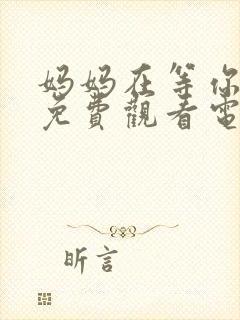 妈妈在等你
免費觀看電
昕言